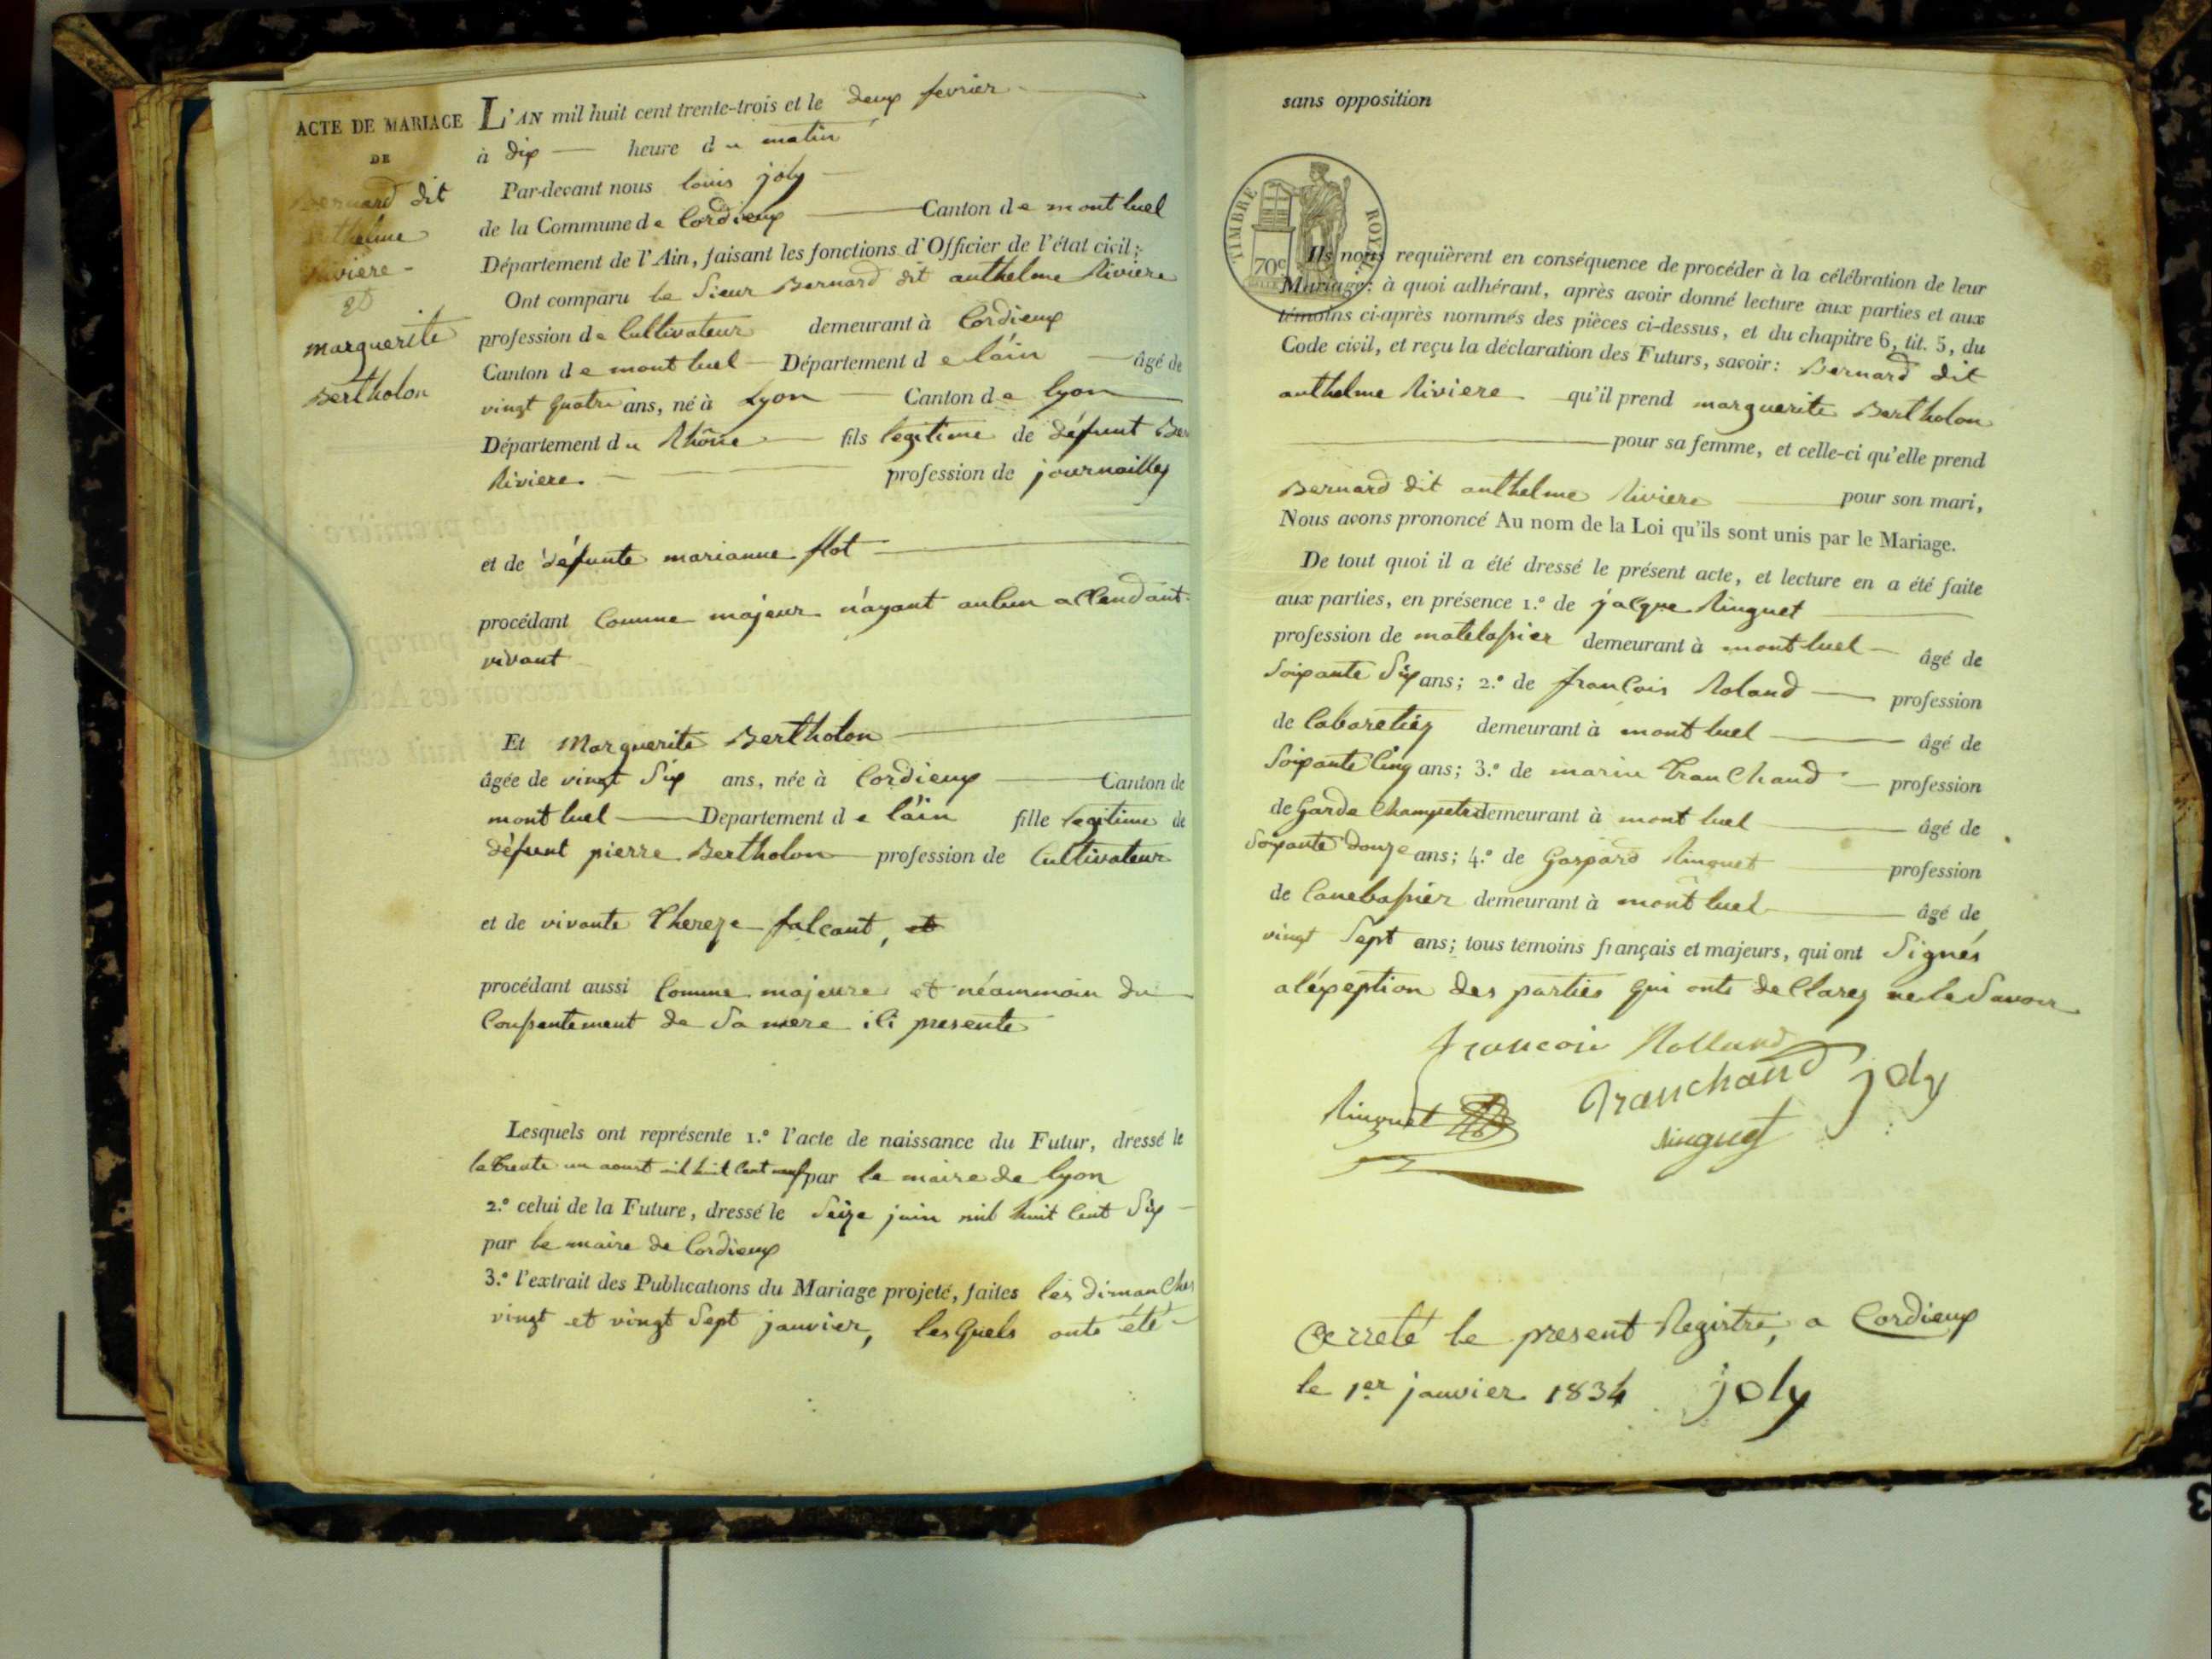 ACTE DE MARIAGE
DE
Bernard dit
anthelme
Riviere
et
marguerite
Bertholon
L'AN mil huit cent trente-trois et le deux fevrier
à dix heure du matin
Par-devant nous louis joly
de la Commune de Cordieux Canton de montluel
Département de l'Ain, faisant les fonctions d'Officier de l'état civil;
Ont comparu le Sieur Bernard dit anthelme Riviere
profession de Cultivateur demeurant à Cordieux
Canton de montluel Département de l'ain âgé de
vingt quatre ans, né à Lyon Canton de lyon
Département du Rhône fils legitime de défunt
Riviere profession de journaillez
et de défunte marianne flot
procédant Comme majeur n'ayant aucun
vivant
Et Marguerite Bertholon
âgée de vingt Six ans, née à Cordieux Canton de
montluel Departement de l'ain fille legitime de
défunt pierre Bertholon profession de Cultivateur
et de vivante Thereze falcant, et
procédant aussi Comme majeure et néammoin du
Consentement de Sa mere ici presente
Lesquels ont représente 1.º l'acte de naissance du Futur, dressé le
le trente un aoust mil huit Cent neuf par le maire de lyon
2.º celui de la Future, dressé le Seize juin mil huit Cent Six
par le maire de Cordieux
3.º l'extrait des Publications du Mariage projeté, faites les dimanches
vingt et vingt Sept janvier, lesquels onts été
sans opposition
TIMBRE ROYAL
70c
Ils nous requièrent en conséquence de procéder à la célébration de leur
Mariage: à quoi adhérant, après avoir donné lecture aux parties et aux
témoins ci-après nommés des pièces ci-dessus, et du chapitre 6, tit. 5, du
Code civil, et reçu la déclaration des Futurs, savoir: Bernard dit
anthelme Riviere qu'il prend marguerite Bertholon
pour sa femme, et celle-ci qu'elle prend
Bernard dit anthelme Riviere pour son mari,
Nous avons prononcé Au nom de la Loi qu'ils sont unis par le Mariage.
De tout quoi il a été dressé le présent acte, et lecture en a été faite
aux parties, en présence 1.º de jacque Ringuet
profession de matelassier demeurant à montluel âgé de
Soixante Six ans; 2.º de francois Roland profession
de Cabaretiez demeurant à montluel âgé de
Soixante Cinq ans; 3.º de marin Tranchand profession
de Garde Champetre demeurant à montluel âgé de
Soixante douze ans; 4.º de Gaspard Ringuet profession
de Canebassier demeurant à montluel âgé de
vingt Sept ans; tous temoins français et majeurs, qui ont Signés
a l'exeption des parties qui onts declarez ne le Savoir
francois Rolland
Ringuet Tranchand joly
Ringuet
Arreté le present Registre, a Cordieux
le 1er janvier 1834 joly
3